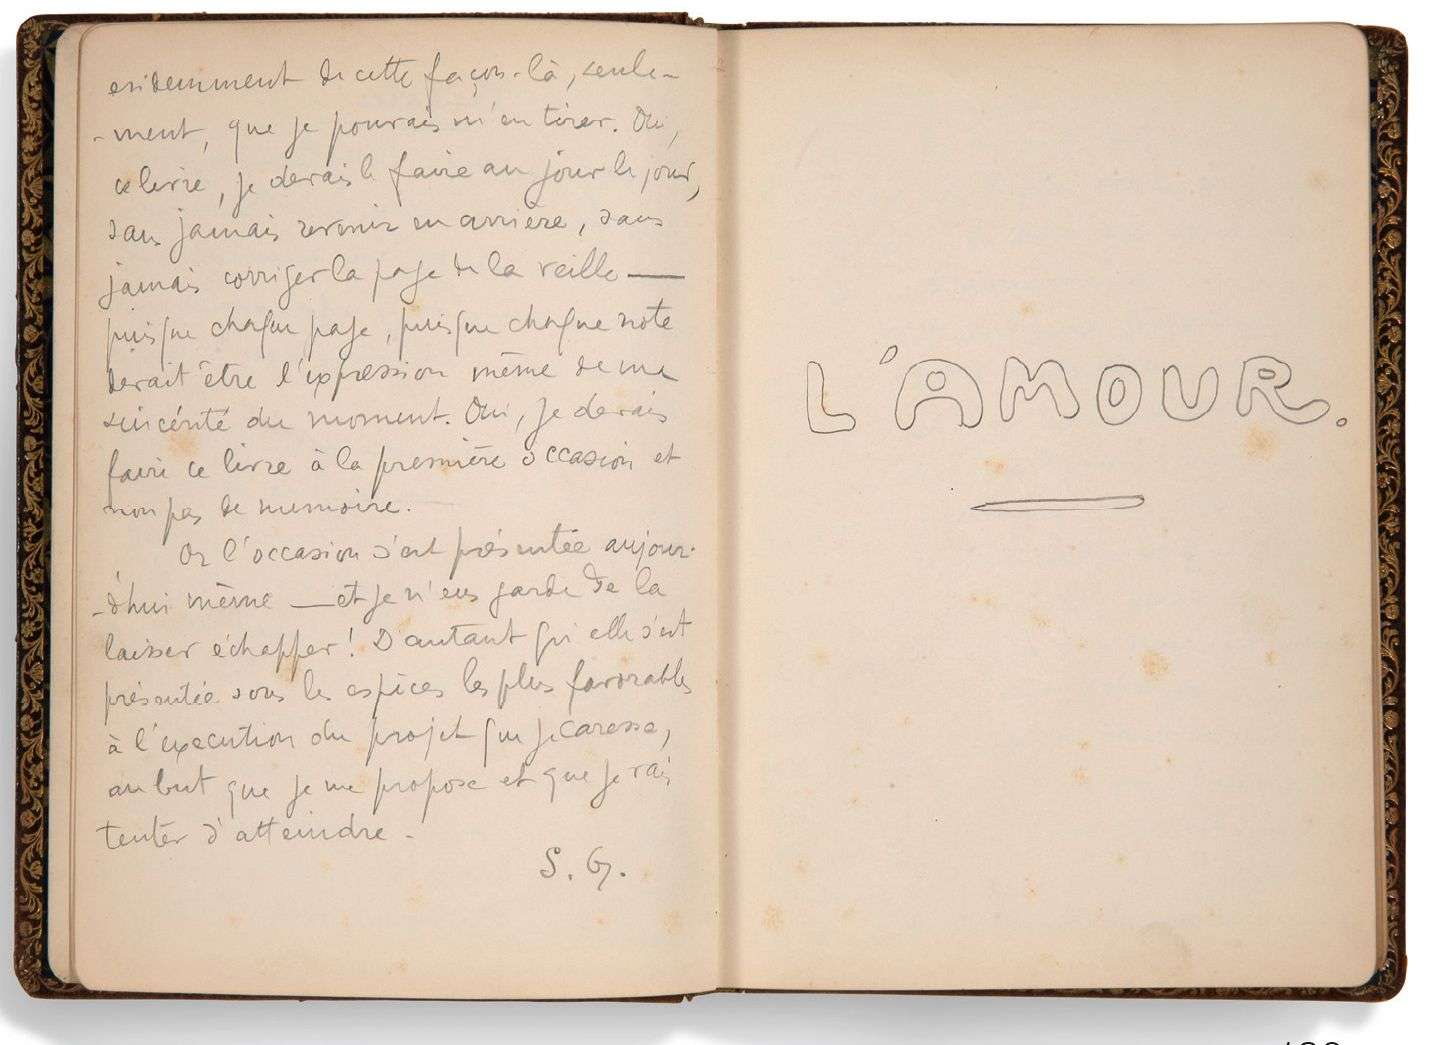 evidemment de cette façon-là, seule-
-ment, que je pourrais m'en tirer. Oui,
ce livre, je devais le faire au jour le jour,
sans jamais revenir en arrière, sans
jamais corriger la page de la veille —
puisque chaque page, puisque chaque note
devait être l'expression même de ma
sincérité du moment. Oui, je devais
faire ce livre à la première occasion et
non pas de memoire.
Or l'occasion s'est présentée aujour-
-d'hui même — et je n'eus garde de la
laisser échapper! D'autant qu'elle s'est
présentée sous les ospices les plus favorables
à l'execution du projet que je caresse,
au but que je me propose et que je vais
tenter d'atteindre.
S. G.
L'AMOUR.